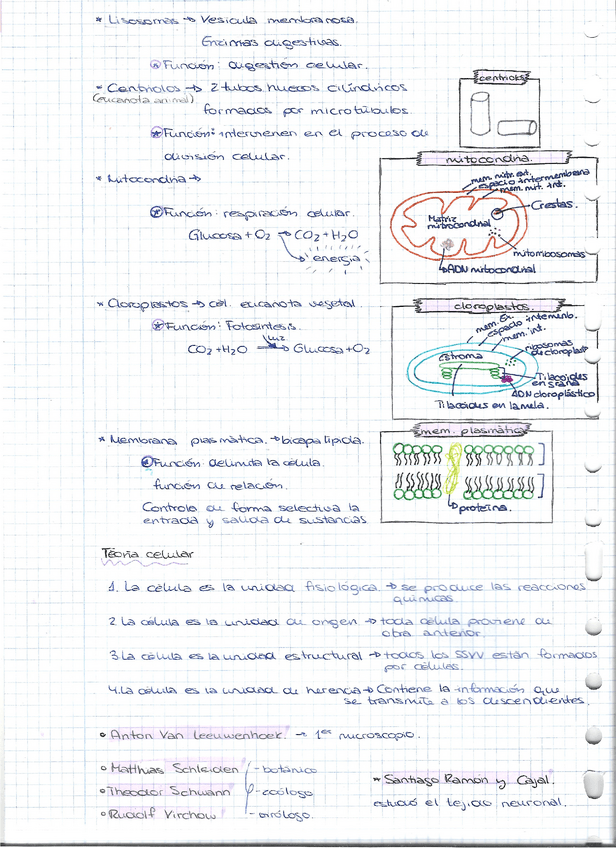 * Lisosomas → Vesícula membranosa.
Enzimas digestivas.
* Función: digestión celular.
- Centriolos → 2 tubos huecos cilíndricos
(eucariota animal)
formados por microtúbulos.
* Función: intervienen en el proceso de
división celular.
centriolos
* Mitocondria →
* Función: respiración celular.
Glucosa + O₂ → CO₂ + H₂O
energía
mitocondria.
mem. mitr. ext.
espacio intermembrana
mem. mit. int.
Crestas.
Matriz
mitrocondrial
mitorribosomas
ADN mitocondrial
* Cloroplastos → cél. eucariota vegetal.
* Función: Fotosíntesis.
luz
CO₂ + H₂O → Glucosa + O₂
cloroplastos
mem. Ex.
espacio intermemb.
mem. int.
ribosomas
de cloroplast
Estroma
Tilacoides
en grana
ADN cloroplástico
Tilacoides en lamela.
* Membrana plasmática → bicapa lípida.
* Función: delimita la célula.
función de relación.
Controla de forma selectiva la
entrada y salida de sustancias
mem. plasmática
proteína.
Teoría celular
1. La célula es la unidad fisiológica. → se produce las reacciones
químicas.
2 La célula es la unidad de origen → toda célula proviene de
otra anterior.
3 La célula es la unidad estructural → todos los SSVV están formados
por células.
4. La célula es la unidad de herencia → Contiene la información que
se transmite a los descendientes.
• Anton Van Leeuwenhoek. → 1er microscopio.
• Matthias Schleiden - botánico
• Theodor Schwann - zoólogo
• Rudolf Virchow - virólogo.
* Santiago Ramón y Cajal.
estudió el tejido neuronal.